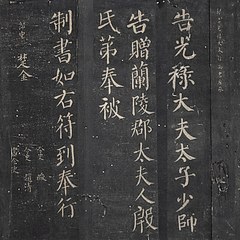 告光祿大夫太子少師
告贈蘭陵郡太夫人殷
氏第奉被
制書如右符到奉行
楚金